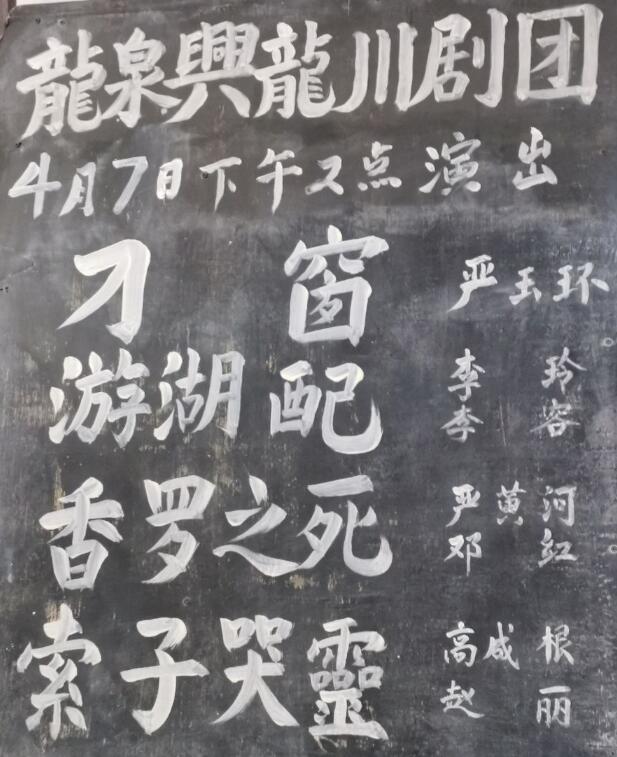 龍泉興龍川剧团
4月7日下午2点演出
刁窗 严玉环
游湖配 李玲
李容
香罗之死 严黄河
邓红
索子哭靈 高咸根
赵丽